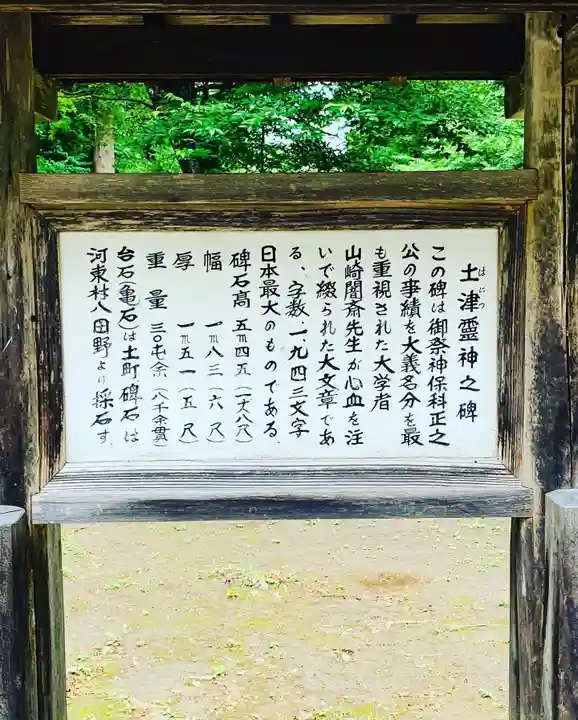 土津霊神之碑
はにつ
この碑は御祭神保科正之
公の事績を大義名分を最
も重視された大学者
山崎闇斎先生が心血を注
いで綴られた大文章であ
る、字数一、九四三文字
日本最大のものである。
碑石高 五m四五(一丈八尺)
幅 一m八三(六尺)
厚 一m五一(五尺)
重量 三〇屯余(八千余貫)
台石(亀石)は土町碑石は
河東村八田野より採石す。